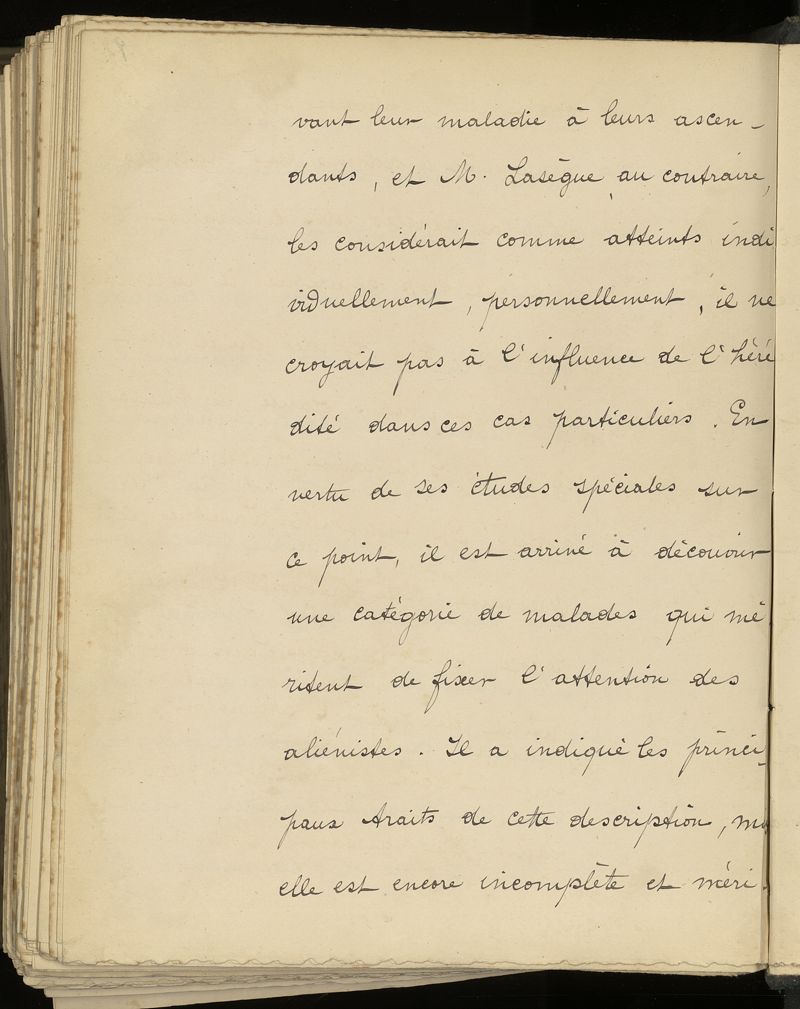 vant leur maladie à leurs ascen-
dants, et M. Lasègue, au contraire,
les considérait comme atteints indi
viduellement, personnellement, il ne
croyait pas à l'influence de l'héré
dité dans ces cas particuliers. En
vertu de ses études spéciales sur
ce point, il est arrivé à découvrir
une catégorie de malades qui mé
ritent de fixer l'attention des
aliénistes. Il a indiqué les princi-
paux traits de cette description,
elle est encore incomplète et méri-